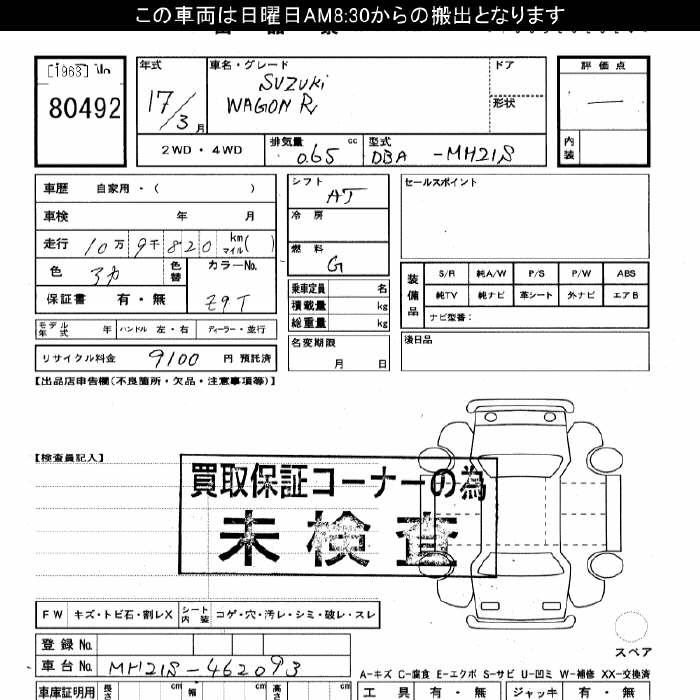 この車両は日曜日AM8:30からの搬出となります
80492
年式
17/3月
車名・グレード
SUZUKI
WAGON R
ドア
形状
評価点
内装
2WD・4WD
排気量 0.65 cc
型式 DBA -MH21S
車歴 自家用・( )
車検 年 月
走行 10万9千820 km マイル( )
色 アカ
色替
カラーNo.
Z9T
保証書 有・無
シフト AT
冷房
燃料 G
乗車定員 名
積載量 kg
総重量 kg
セールスポイント
装備品
S/R 純A/W P/S P/W ABS
純TV 純ナビ 革シート 外ナビ エアB
ナビ型番:
モデル年式 年 ハンドル 左・右 ディーラー・並行
リサイクル料金 9100 円 預託済
名変期限
月 日
後日品
【出品店申告欄(不良箇所・欠品・注意事項等)】
【検査員記入】
買取保証コーナーの為
未検査
FW キズ・トビ石・割レX シート内装 コゲ・穴・汚レ・シミ・破レ・スレ
登録No.
車台No. MH21S-462093
スペア
A-キズ C-腐食 E-エクボ S-サビ U-凹ミ W-補修 XX-交換済
車庫証明用 長さ cm 幅 cm 高さ cm
工具 有・無 ジャッキ 有・無